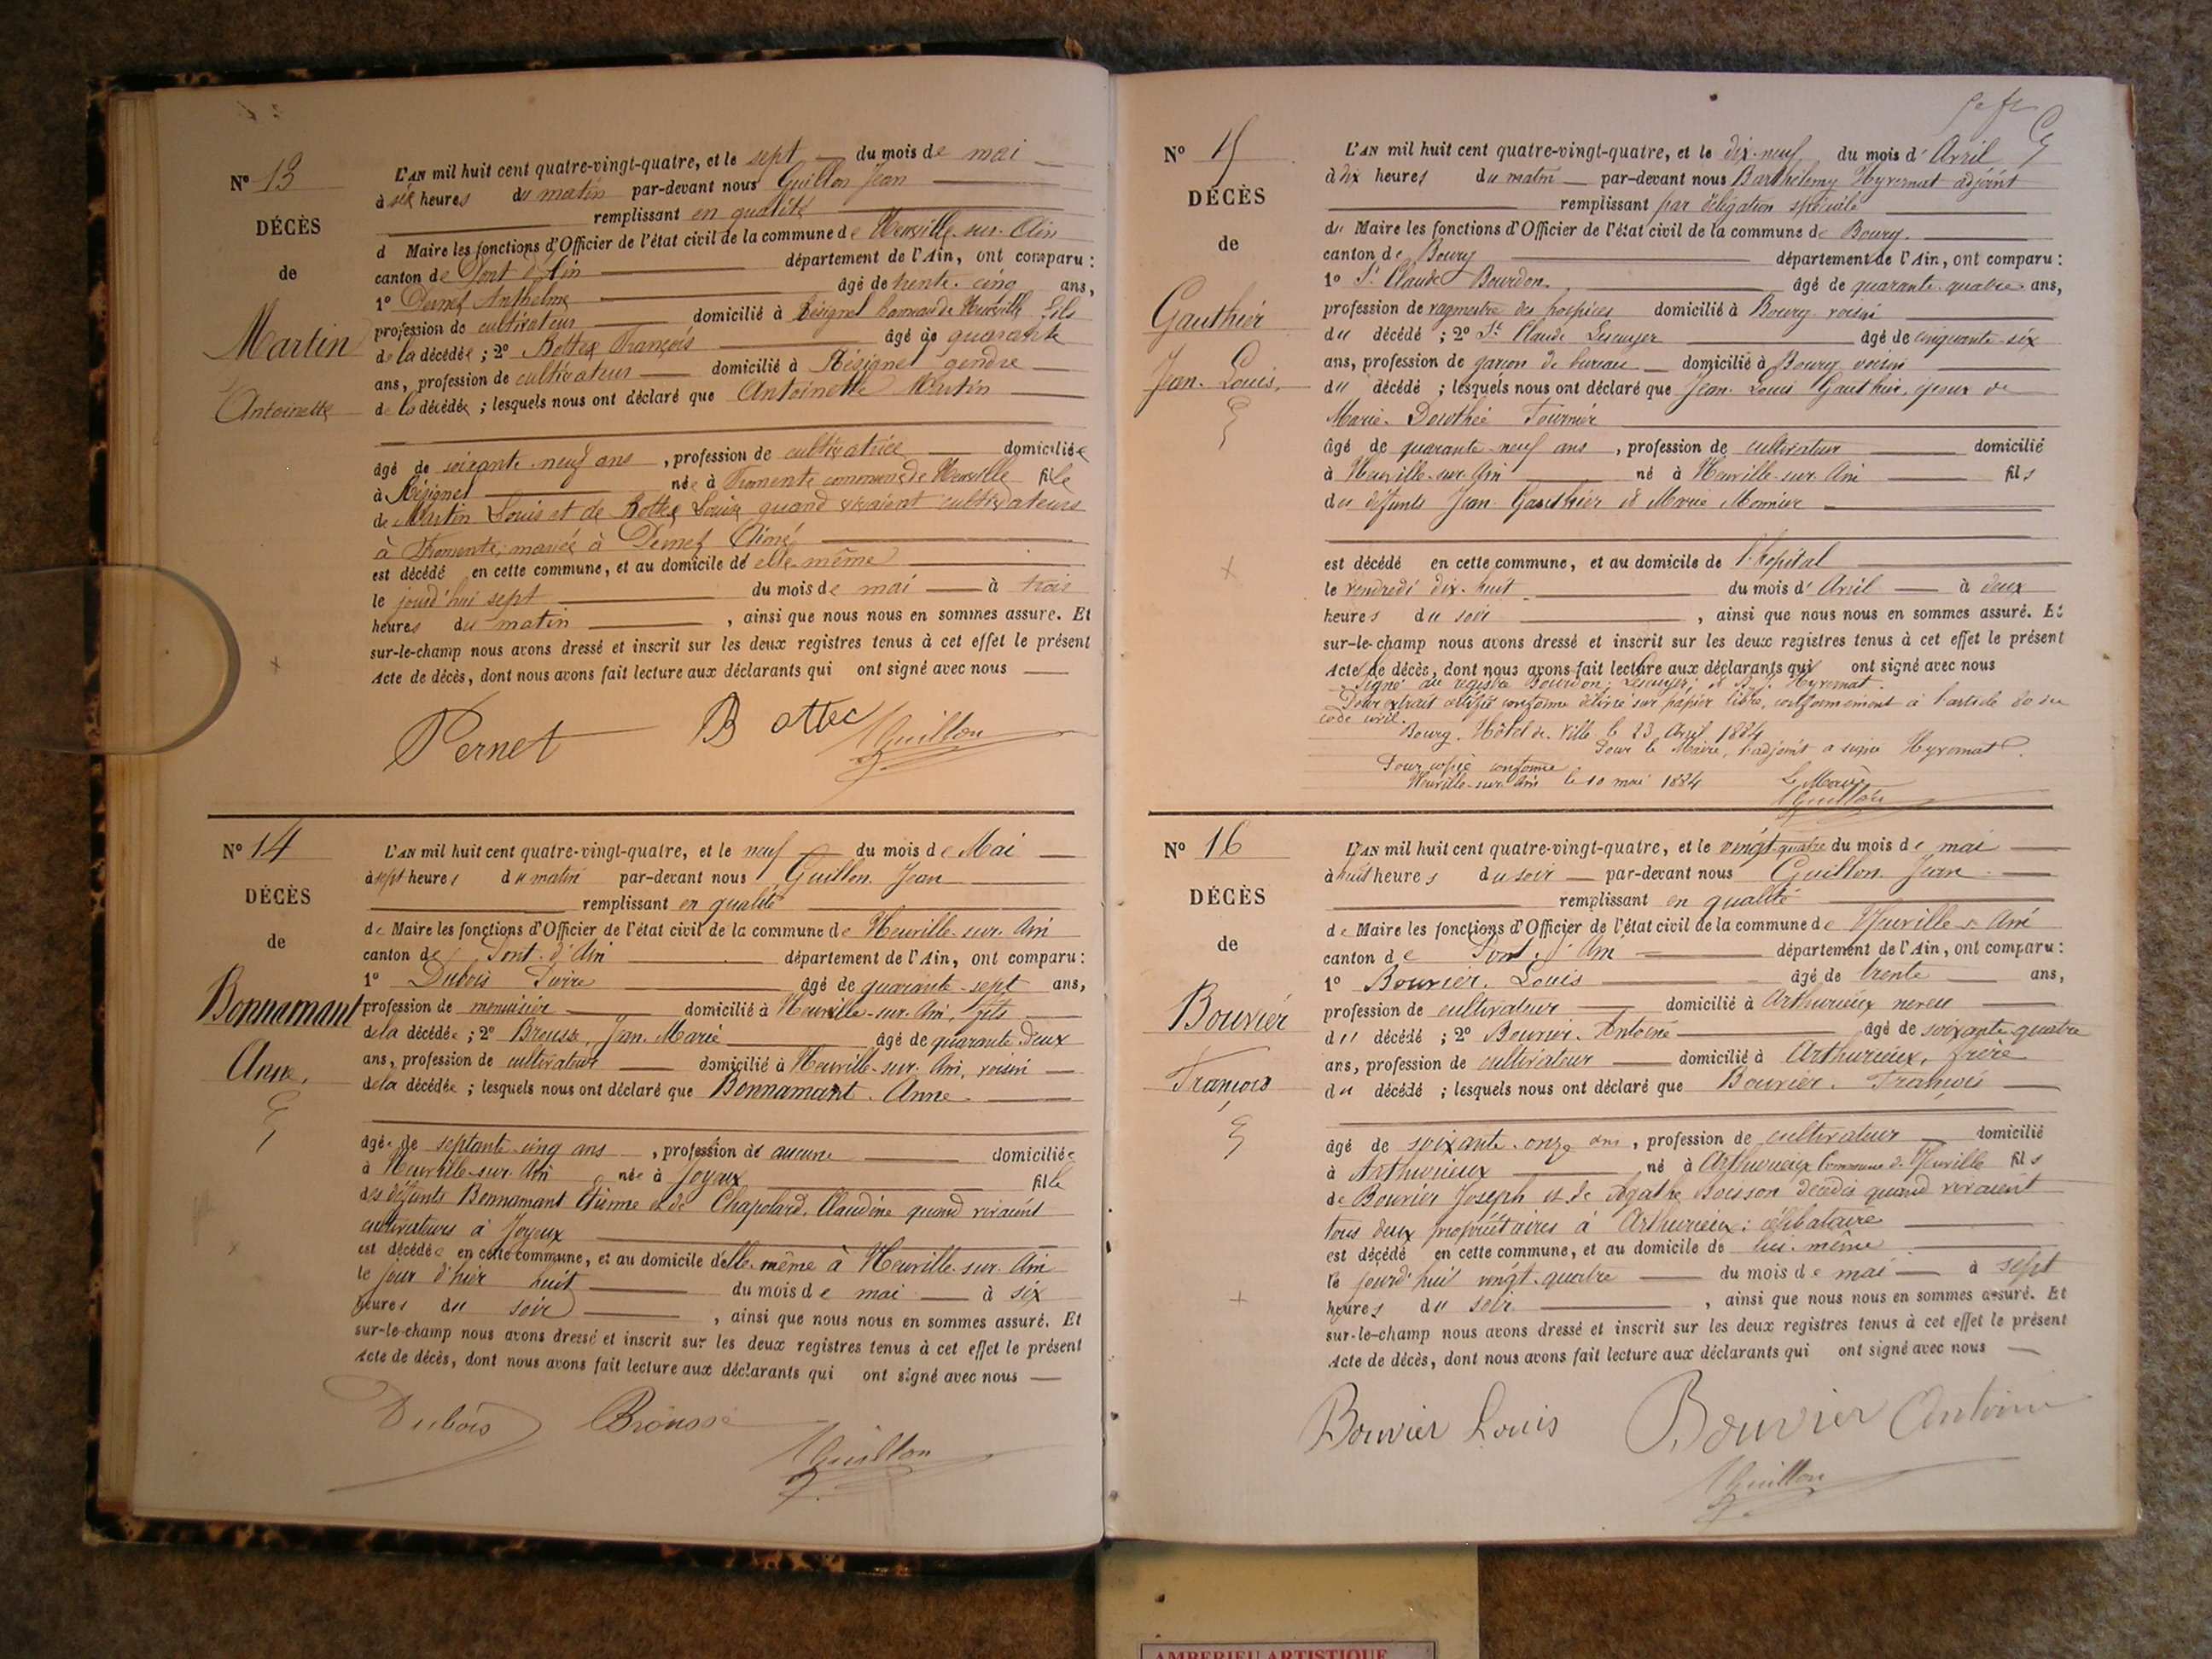 N° 13
DÉCÈS
de
Martin
Antoinette
L'AN mil huit cent quatre-vingt-quatre, et le sept du mois de mai
à six heures du matin par-devant nous Guillon Jean
remplissant en qualité
d Maire les fonctions d'Officier de l'état civil de la commune de Neuville-sur-Ain
canton de Pont d'Ain département de l'Ain, ont comparu :
1° Pernet Anthelme âgé de trente-cinq ans,
profession de cultivateur domicilié à Résignel hameau de Neuville fils
de la décédée ; 2° Bottex François âgé de quarante
ans, profession de cultivateur domicilié à Résignel gendre
de la décédée ; lesquels nous ont déclaré que Antoinette Martin
âgé de soixante-neuf ans, profession de cultivatrice domiciliée
à Résignel née à Fromente commune de Neuville fille
de Martin Louis et de Bottex Louise quand vivaient cultivateurs
à Fromente, mariée à Pernet Aimé
est décédé en cette commune, et au domicile de elle-même
le jourd'hui sept du mois de mai à trois
heures du matin, ainsi que nous nous en sommes assuré. Et
sur-le-champ nous avons dressé et inscrit sur les deux registres tenus à cet effet le présent
Acte de décès, dont nous avons fait lecture aux déclarants qui ont signé avec nous
Pernet Bottex Guillon
N° 14
DÉCÈS
de
Bonnamant
Anne.
L'AN mil huit cent quatre-vingt-quatre, et le neuf du mois de Mai
à sept heures du matin par-devant nous Guillon Jean
remplissant en qualité
de Maire les fonctions d'Officier de l'état civil de la commune de Neuville-sur-Ain
canton de Pont-d'Ain département de l'Ain, ont comparu :
1° Dubois Pierre âgé de quarante-sept ans,
profession de menuisier domicilié à Neuville-sur-Ain, fils
de la décédée ; 2° Brousse, Jean-Marie âgé de quarante deux
ans, profession de cultivateur domicilié à Neuville-sur-Ain, voisin
de la décédée ; lesquels nous ont déclaré que Bonnamant Anne
âgée de septante cinq ans, profession de aucune domiciliée
à Neuville-sur-Ain née à Joyeux fille
des défunts Bonnamant Etienne et de Chapolard, Claudine quand vivaient
cultivateurs à Joyeux
est décédée en cette commune, et au domicile d'elle-même à Neuville-sur-Ain
le jour d'hier huit du mois de mai à six
heures du soir, ainsi que nous nous en sommes assuré. Et
sur-le-champ nous avons dressé et inscrit sur les deux registres tenus à cet effet le présent
Acte de décès, dont nous avons fait lecture aux déclarants qui ont signé avec nous
Dubois Brousse
Guillon
N° 15
DÉCÈS
de
Gauthier
Jean-Louis.
L'AN mil huit cent quatre-vingt-quatre, et le dix-neuf du mois d'Avril
à dix heures du matin par-devant nous Barthélemy Hyvernat adjoint
remplissant par délégation spéciale
du Maire les fonctions d'Officier de l'état civil de la commune de Bourg.
canton de Bourg département de l'Ain, ont comparu :
1° St Claude Bourdon. âgé de quarante-quatre ans,
profession de vagmestre des hospices domicilié à Bourg voisin
du décédé ; 2° St Claude Lescuyer âgé de cinquante-six
ans, profession de garçon de bureau domicilié à Bourg voisin
du décédé ; lesquels nous ont déclaré que Jean-Louis Gauthier, époux de
Marie-Dorothée Fournier
âgé de quarante-neuf ans, profession de cultivateur domicilié
à Neuville-sur-Ain né à Neuville-sur-Ain fils
des défunts Jean Gauthier et Marie Monnier
est décédé en cette commune, et au domicile de l'hôpital
le vendredi dix-huit du mois d'Avril à deux
heures du soir, ainsi que nous nous en sommes assuré. Et
sur-le-champ nous avons dressé et inscrit sur les deux registres tenus à cet effet le présent
Acte de décès, dont nous avons fait lecture aux déclarants qui ont signé avec nous
Signé au registre Bourdon; Lescuyer; et Hyvernat.
Pour extrait certifié conforme délivré sur papier libre, conformément à l'article 80 du
code civil.
Bourg. Hôtel de Ville le 23 Avril 1884
Pour le Maire, l'adjoint a signé Hyvernat.
Pour copie conforme
Neuville-sur-Ain le 10 mai 1884 Le Maire
Guillon
N° 16
DÉCÈS
de
Bouvier
François
L'AN mil huit cent quatre-vingt-quatre, et le vingt-quatre du mois de mai
à huit heures du soir par-devant nous Guillon Jean
remplissant en qualité
de Maire les fonctions d'Officier de l'état civil de la commune de Neuville s Ain
canton de Pont-d'Ain département de l'Ain, ont comparu :
1° Bouvier. Louis âgé de trente ans,
profession de cultivateur domicilié à Arthurieux neveu
du décédé ; 2° Bouvier. Antoine âgé de soixante-quatre
ans, profession de cultivateur domicilié à Arthurieux, frère
du décédé ; lesquels nous ont déclaré que Bouvier. François
âgé de soixante-onze ans, profession de cultivateur domicilié
à Arthurieux né à Arthurieux Commune de Neuville fils
de Bouvier Joseph et de Agathe Boisson décédés quand vivaient
tous deux propriétaires à Arthurieux; célibataire
est décédé en cette commune, et au domicile de lui-même
le jourd'hui vingt-quatre du mois de mai à sept
heures du soir, ainsi que nous nous en sommes assuré. Et
sur-le-champ nous avons dressé et inscrit sur les deux registres tenus à cet effet le présent
Acte de décès, dont nous avons fait lecture aux déclarants qui ont signé avec nous
Bouvier Louis Bouvier Antoine
Guillon
AMBERIEU ARTISTIQUE